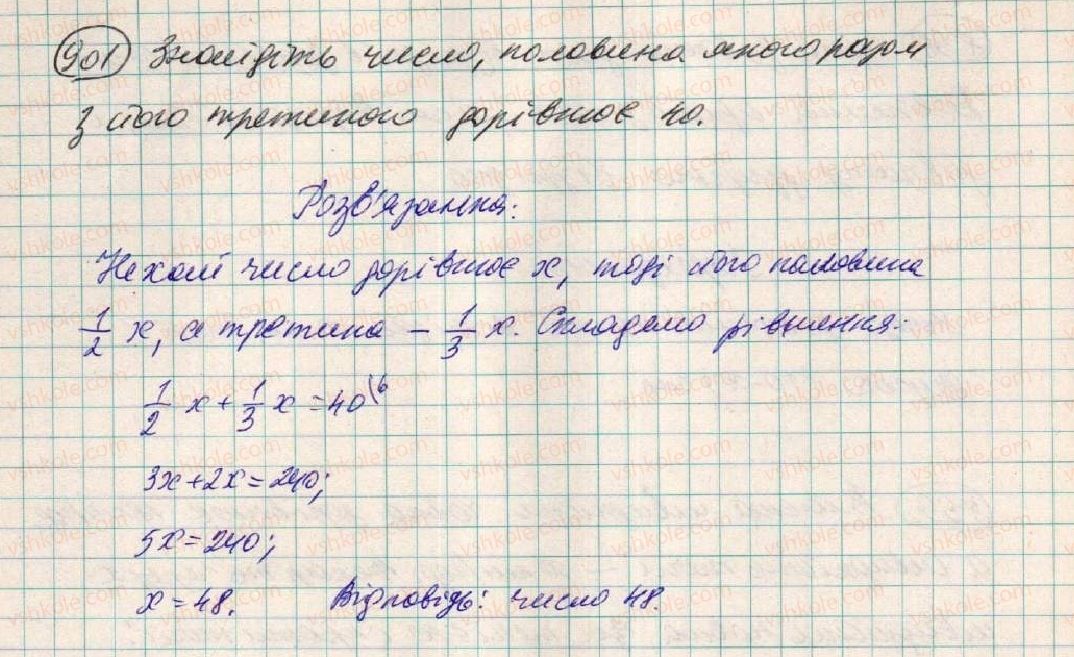 901 Знайдіть число, половина якого разом
з його третиною дорівнює 40.
Розв'язання:
Нехай число дорівнює x, тоді його половина
1/2 x, а третина – 1/3 x. Складемо рівняння:
1/2 x + 1/3 x = 40 |6
3x + 2x = 240;
5x = 240;
x = 48. Відповідь: число 48.